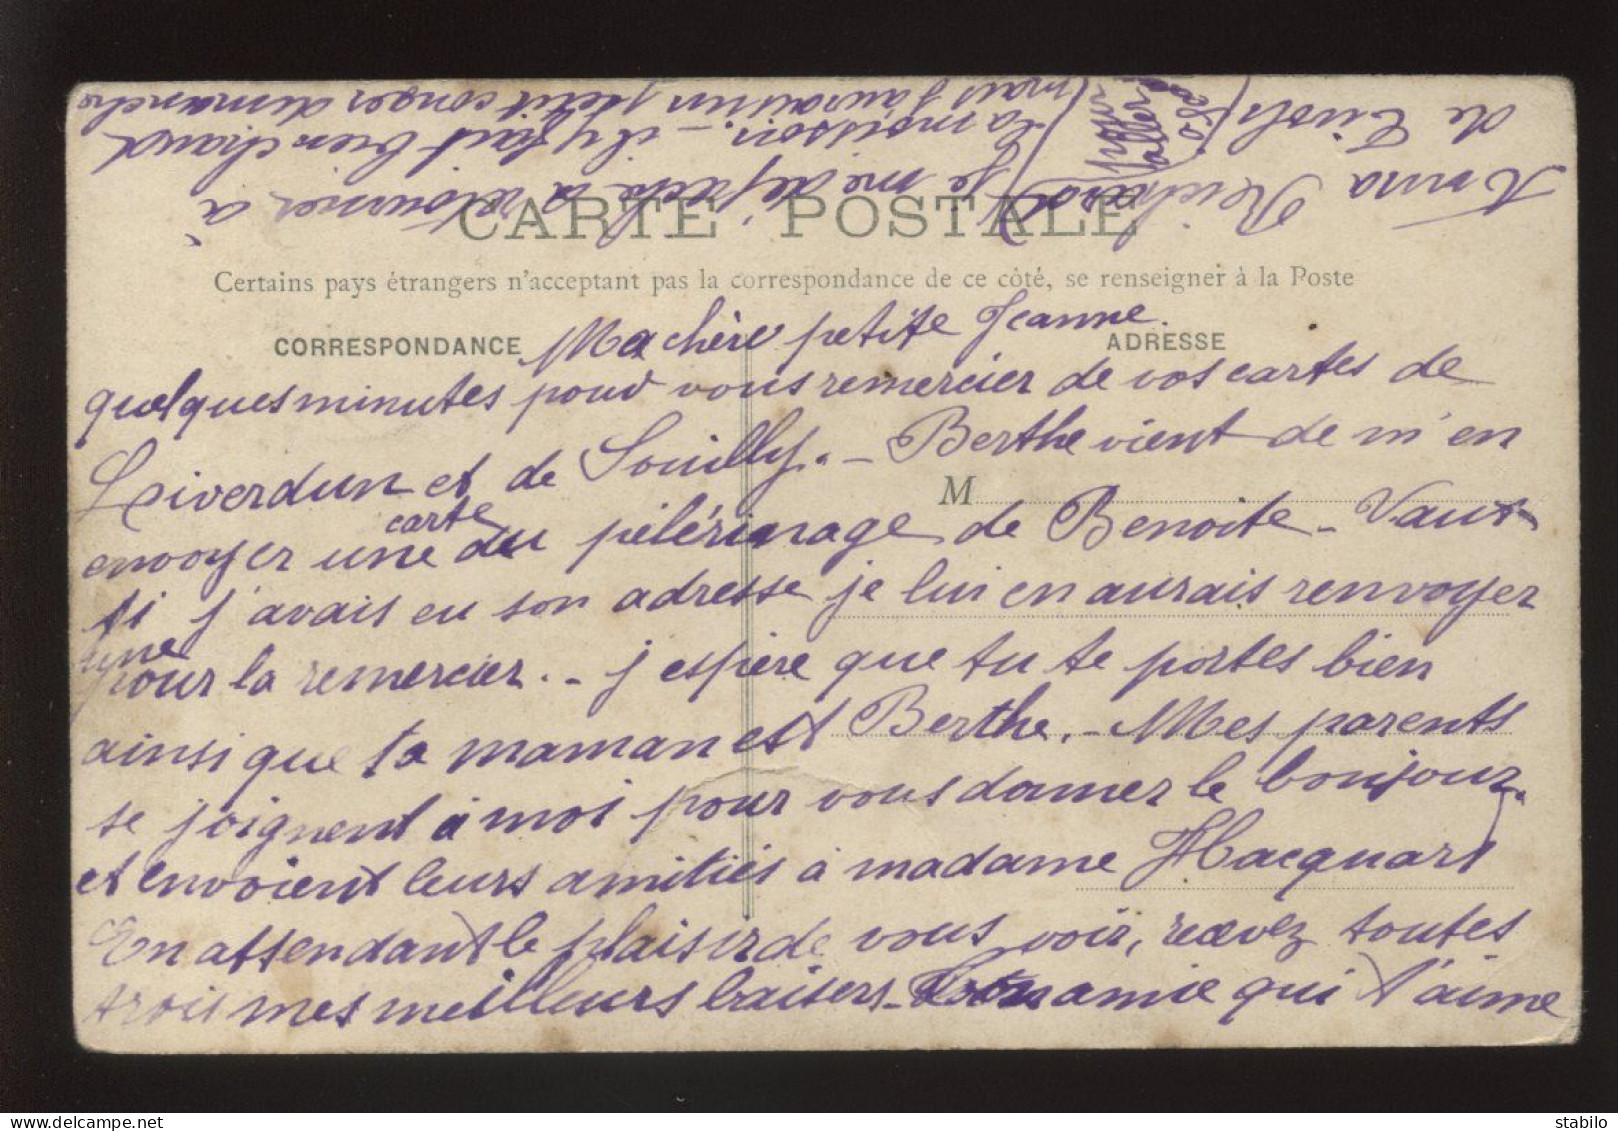 CARTE POSTALE
Certains pays étrangers n'acceptant pas la correspondance de ce côté, se renseigner à la Poste
CORRESPONDANCE
ADRESSE
M
Ma chère petite Jeanne.
quelques minutes pour vous remercier de vos cartes de
Liverdun et de Souilly. - Berthe vient de m'en
envoyer une carte du pélérinage de Benoite-Vaux
si j'avais eu son adresse je lui en aurais renvoyer
une
pour la remercier. - j'espère que tu te portes bien
ainsi que ta maman et Berthe. - Mes parents
se joignent à moi pour vous donner le bonjour.
et envoient leurs amitiés à madame Hacquart
En attendant le plaisir de vous voir, recevez toutes
trois mes meilleurs baisers - amie qui t'aime
Anna
de
Je me dépêche à retourner à
la moisson. - il y fait bien chaud
mais j'aurai un petit conger dimanche
pour
aller